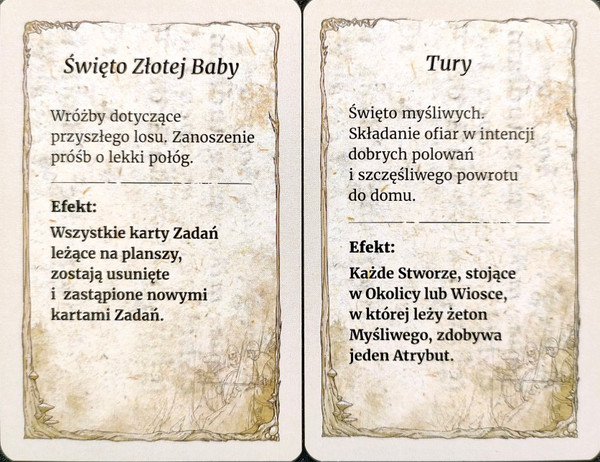 Święto Złotej Baby
Wróżby dotyczące
przyszłego losu. Zanoszenie
próśb o lekki połóg.
Efekt:
Wszystkie karty Zadań
leżące na planszy,
zostają usunięte
i zastąpione nowymi
kartami Zadań.
Tury
Święto myśliwych.
Składanie ofiar w intencji
dobrych polowań
i szczęśliwego powrotu
do domu.
Efekt:
Każde Stworze, stojące
w Okolicy lub Wiosce,
w której leży żeton
Myśliwego, zdobywa
jeden Atrybut.